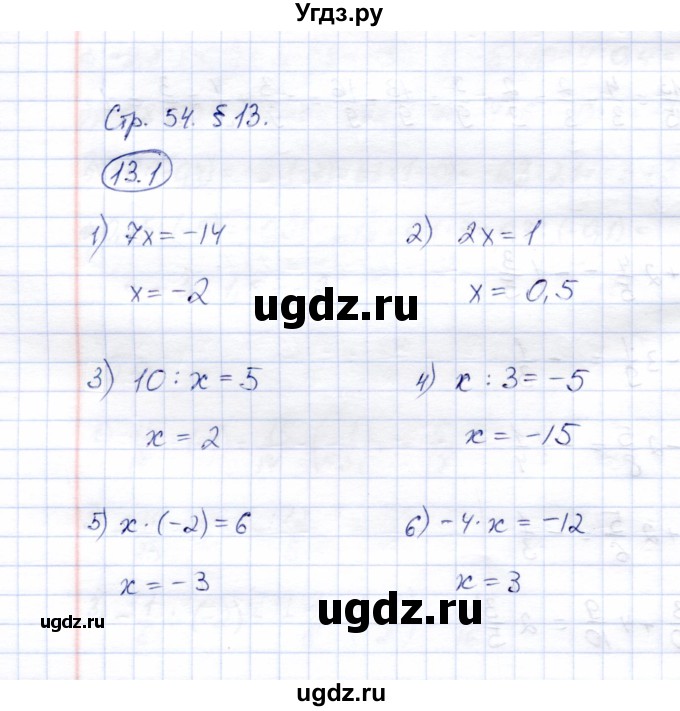 Угдз.ру
Стр. 54. § 13.
13.1
1) 7x = -14
x = -2
2) 2x = 1
x = 0,5
ugdz.ru
3) 10 : x = 5
x = 2
4) x : 3 = -5
x = -15
5) x · (-2) = 6
x = -3
6) -4 · x = -12
x = 3
ugdz.ru
ugdz.ru
ugdz.ru